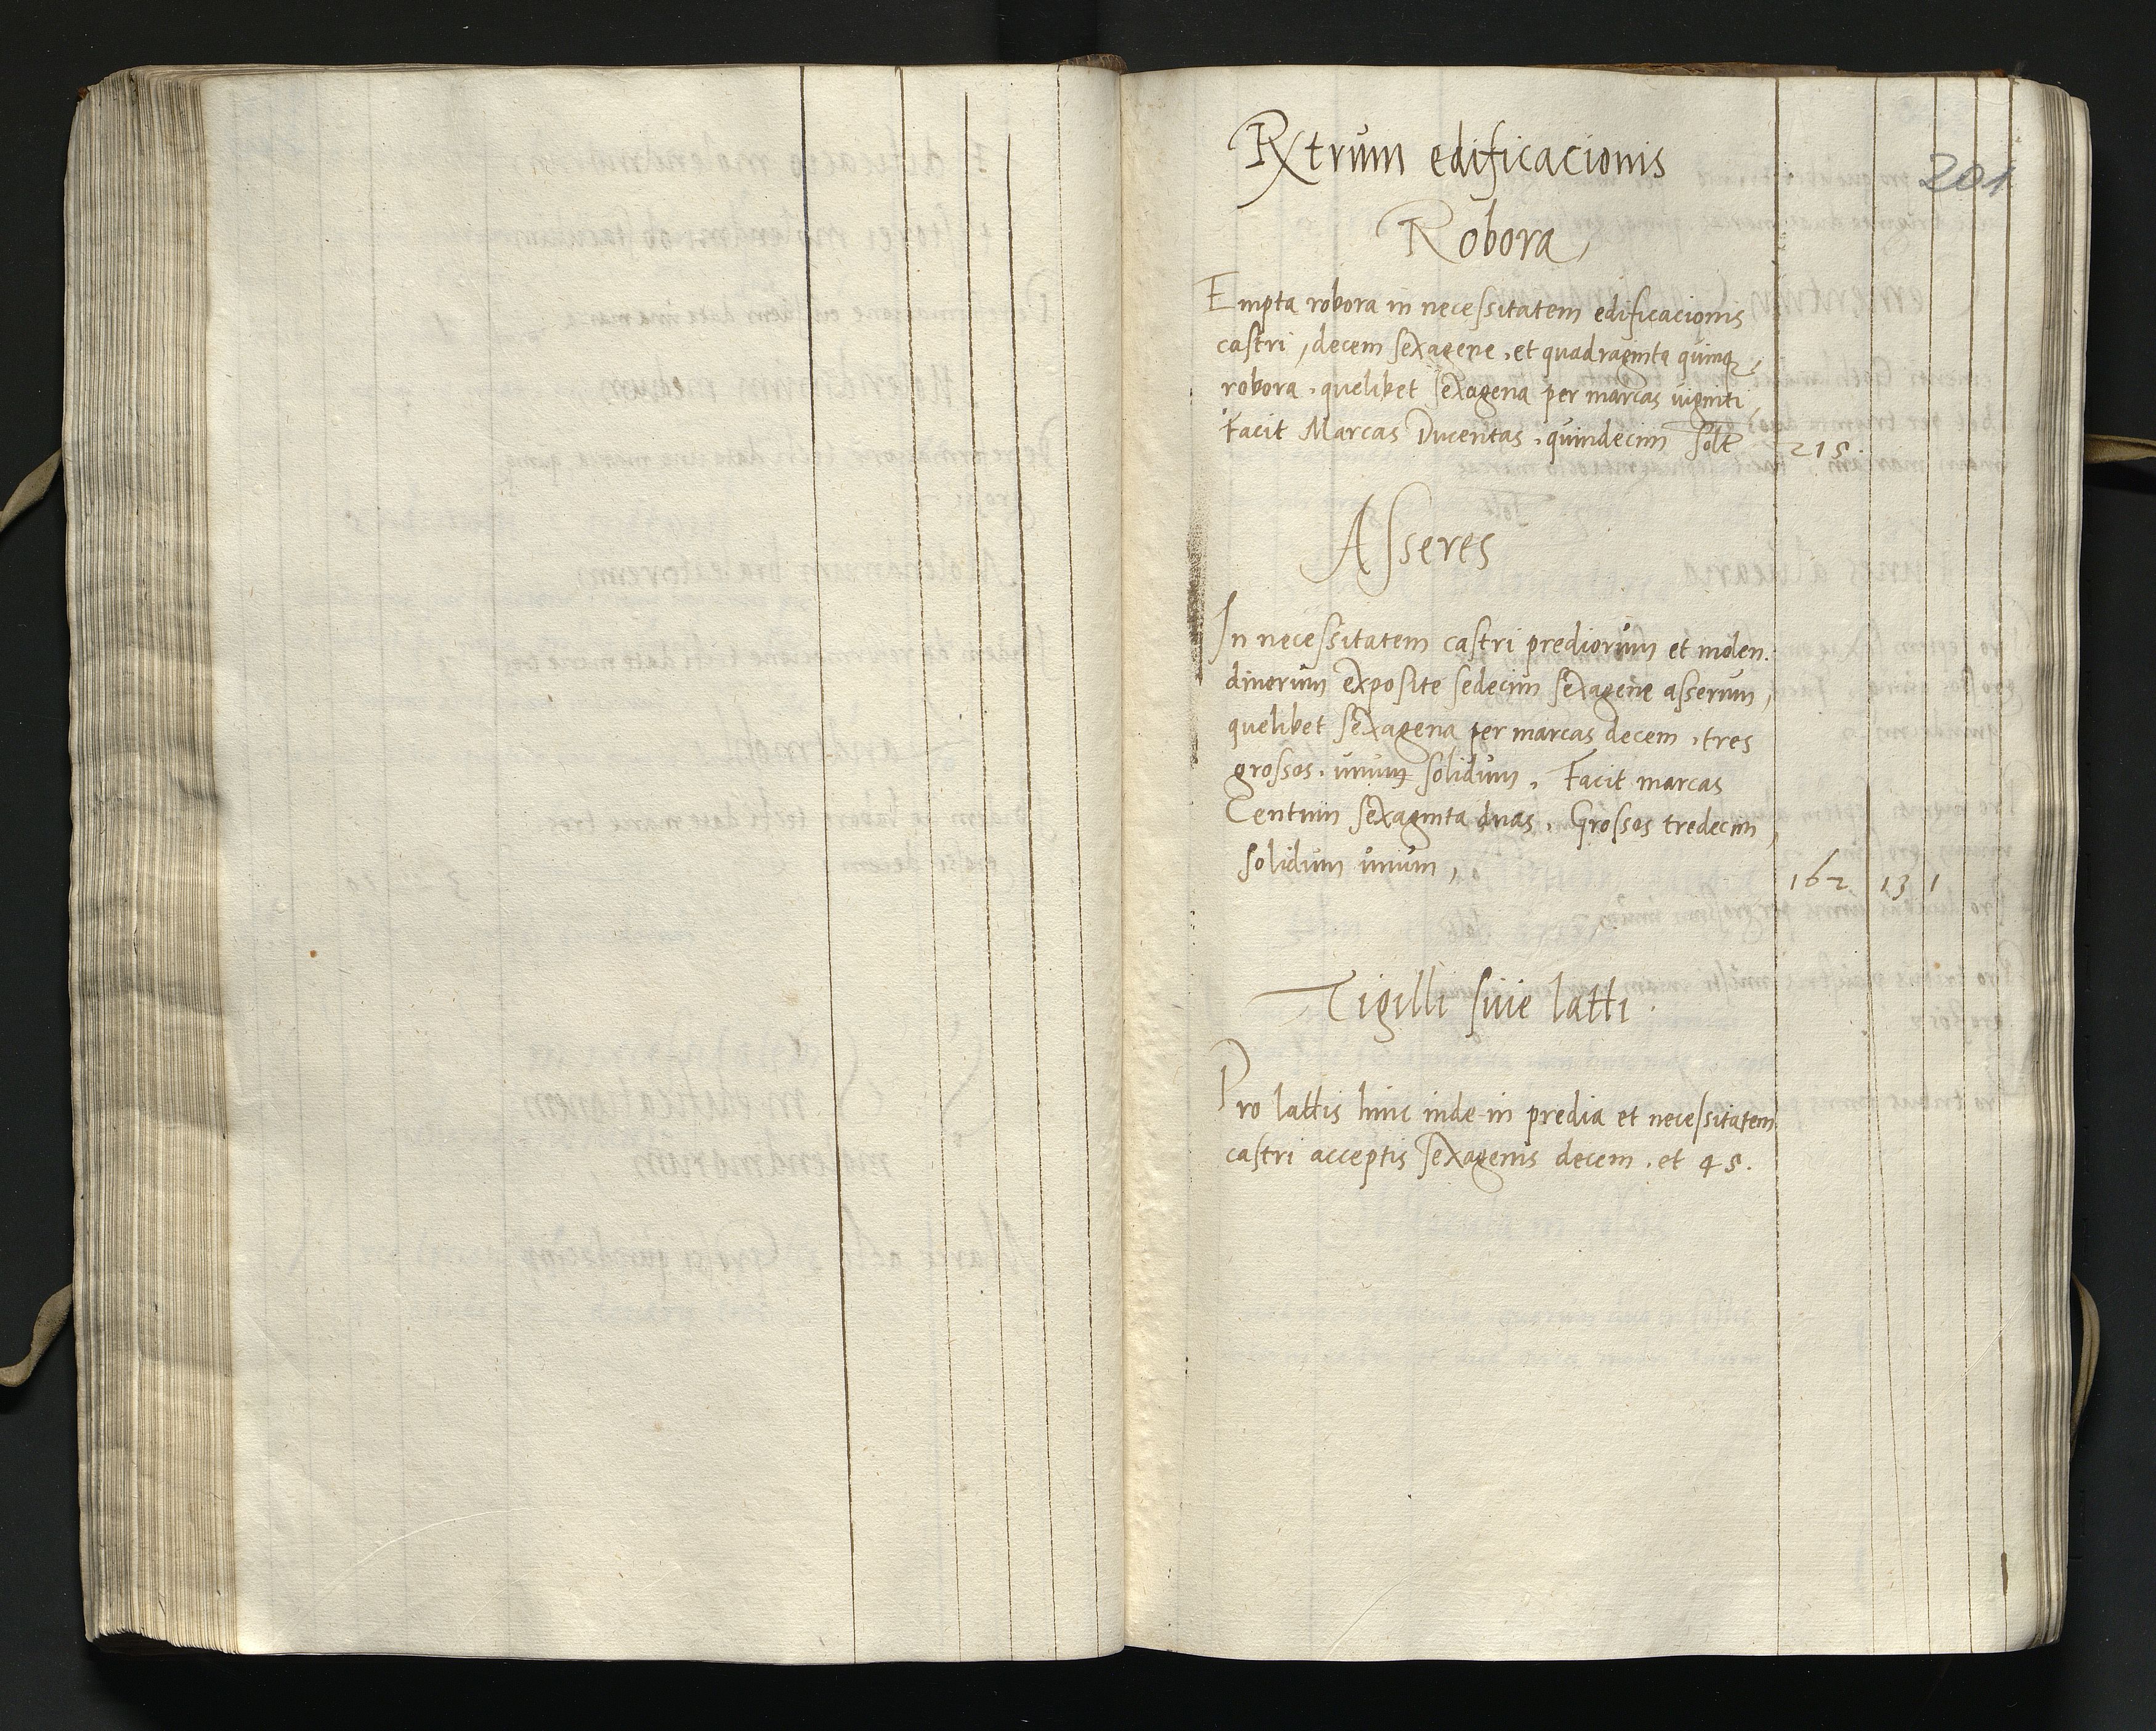 201
Rxtrum edificacionis
Robora
Empta robora in necessitatem edificacionis
castri, decem sexagene, et quadraginta quinq,
robora, quelibet sexagena per marcas viginti,
Facit Marcas Ducentas, quindecim Solt 215.
Asseres
In necessitatem castri prediorum et molen:
dinorum exposite sedecim sexagene asserum,
quelibet sexagena per marcas decem, tres
grossos, unum solidum, Facit marcas
Centum sexaginta duas, Grossos tredecim,
solidum unum, 162 13 1
Tigilli siue latti
Pro lattis hinc inde in predia et necessitatem
castri acceptis sexagenis decem, et 45.